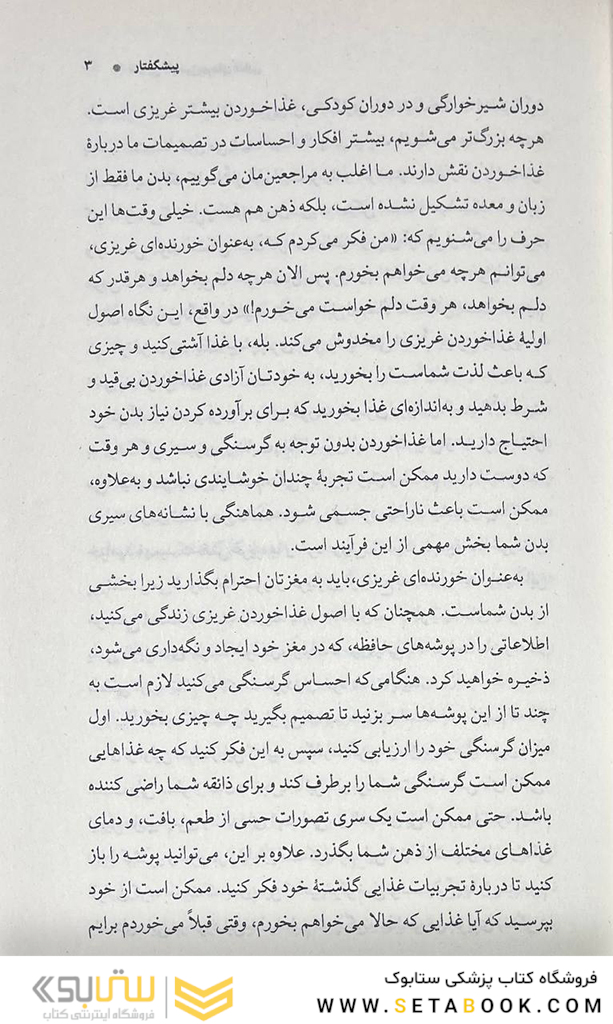 پیشگفتار ● ۳
دوران شیرخوارگی و در دوران کودکی، غذاخوردن بیشتر غریزی است.
هرچه بزرگ‌تر می‌شویم، بیشتر افکار و احساسات در تصمیمات ما دربارهٔ
غذاخوردن نقش دارند. ما اغلب به مراجعین‌مان می‌گوییم، بدن ما فقط از
زبان و معده تشکیل نشده است، بلکه ذهن هم هست. خیلی وقت‌ها این
حرف را می‌شنویم که: «من فکر می‌کردم که، به‌عنوان خورنده‌ای غریزی،
می‌توانم هرچه می‌خواهم بخورم. پس الان هرچه دلم بخواهد و هرقدر که
دلم بخواهد، هر وقت دلم خواست می‌خورم!» در واقع، این نگاه اصول
اولیهٔ غذاخوردن غریزی را مخدوش می‌کند. بله، با غذا آشتی‌کنید و چیزی
که باعث لذت شماست را بخورید، به خودتان آزادی غذاخوردن بی‌قید و
شرط بدهید و به‌اندازه‌ای غذا بخورید که برای برآورده کردن نیاز بدن خود
احتیاج دارید. اما غذاخوردن بدون توجه به گرسنگی و سیری و هر وقت
که دوست دارید ممکن است تجربهٔ چندان خوشایندی نباشد و به‌علاوه،
ممکن است باعث ناراحتی جسمی شود. هماهنگی با نشانه‌های سیری
بدن شما بخش مهمی از این فرآیند است.
به‌عنوان خورنده‌ای غریزی،باید به مغزتان احترام بگذارید زیرا بخشی
از بدن شماست. همچنان که با اصول غذاخوردن غریزی زندگی می‌کنید،
اطلاعاتی را در پوشه‌های حافظه، که در مغز خود ایجاد و نگه‌داری می‌شود،
ذخیره خواهید کرد. هنگامی‌که احساس گرسنگی می‌کنید لازم است به
چند تا از این پوشه‌ها سر بزنید تا تصمیم بگیرید چه چیزی بخورید. اول
میزان گرسنگی خود را ارزیابی کنید، سپس به این فکر کنید که چه غذاهایی
ممکن است گرسنگی شما را برطرف کند و برای ذائقه شما راضی کننده
باشد. حتی ممکن است یک سری تصورات حسی از طعم، بافت، و دمای
غذاهای مختلف از ذهن شما بگذرد. علاوه بر این، می‌توانید پوشه را باز
کنید تا دربارهٔ تجربیات غذایی گذشتهٔ خود فکر کنید. ممکن است از خود
بپرسید که آیا غذایی که حالا می‌خواهم بخورم، وقتی قبلاً می‌خوردم برایم
فروشگاه کتاب پزشکی ستابوک
WWW.SETABOOK.COM
ستابوک
فروشگاه اینترنتی کتاب